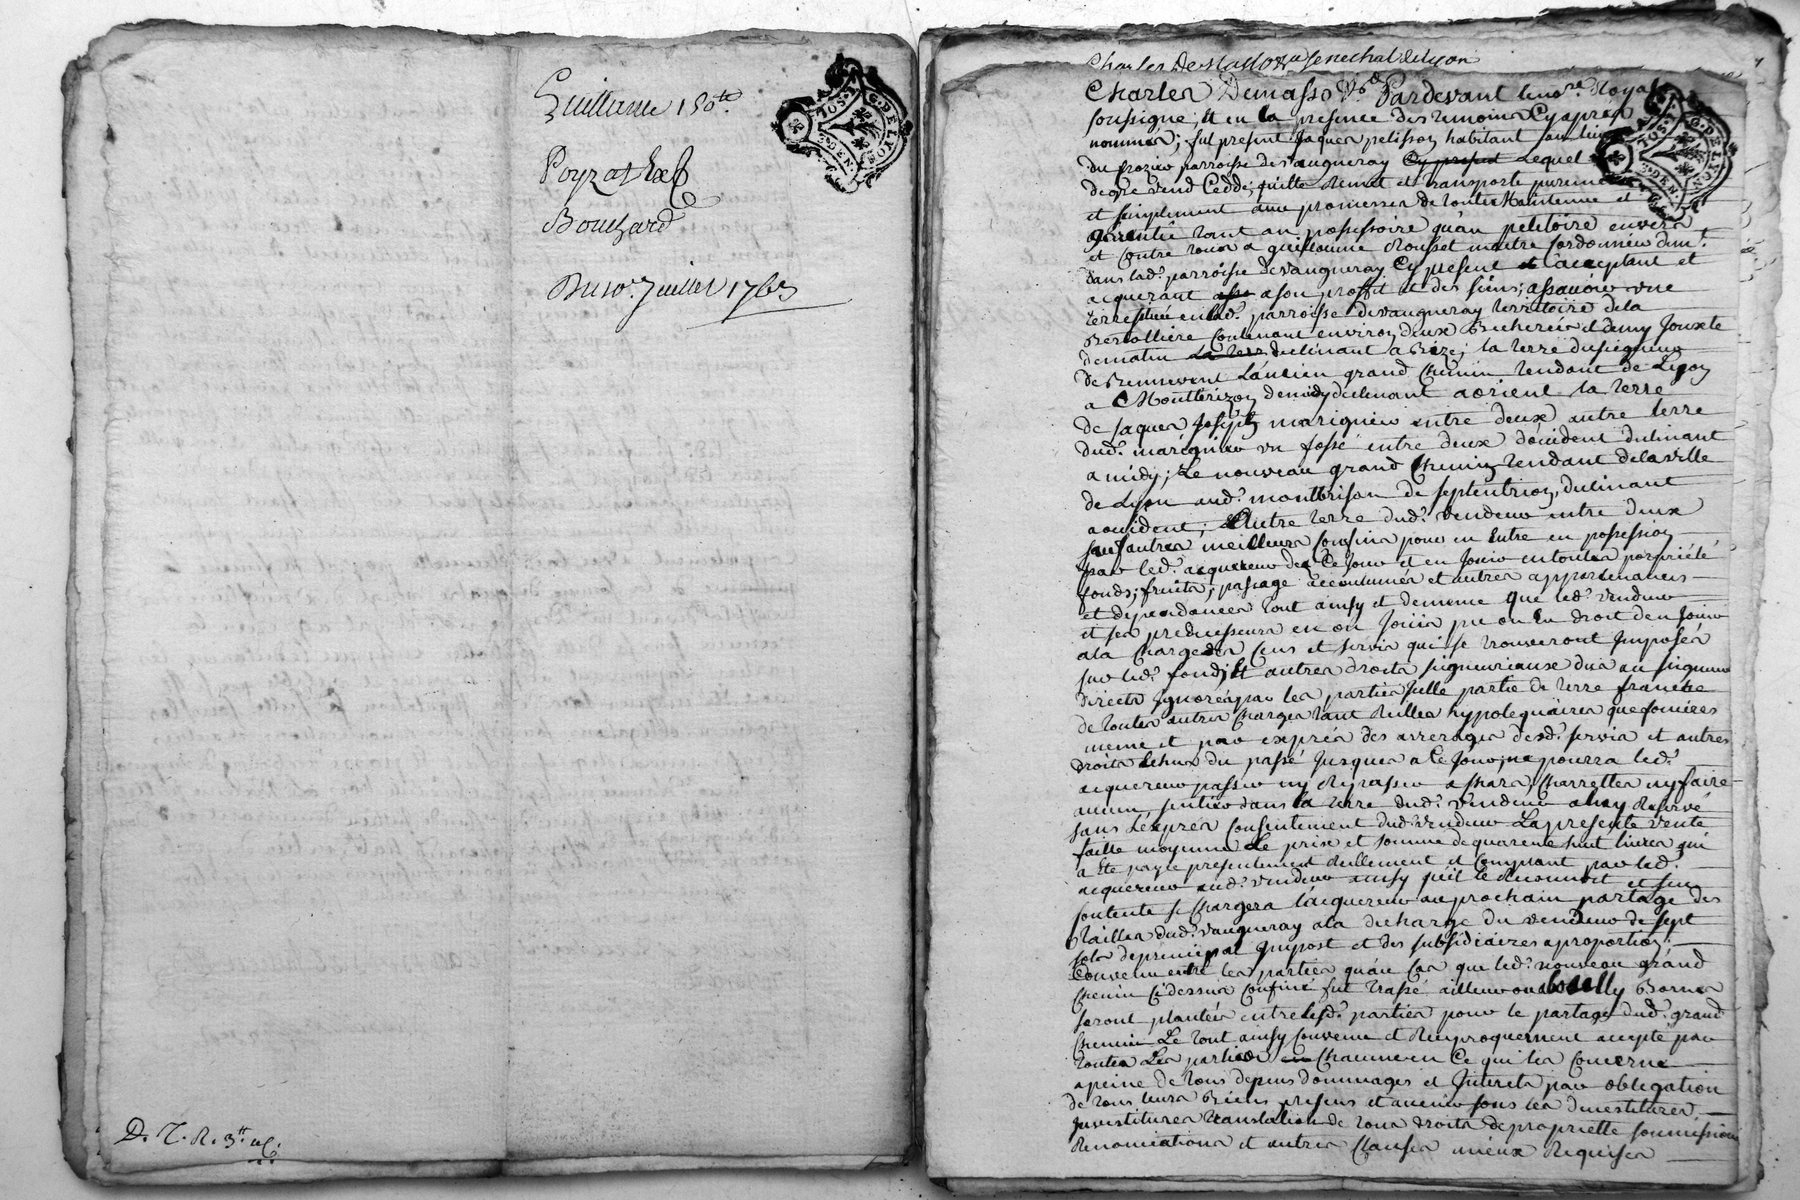 Guillaume 150 tt
Bouchard
Du 10e Juillet 1763
D. T. R. 3 tt
G. DE LYON
SOLS
DEN.
Charles De Masso Senechal de Lyon
Charles Demasso Pardevant le nore Royal
soussigné, et en la presence des temoins Cy apres
nommés; fut present Jaques pelisson habitant au lieu
du parroisse de vaugneray Cy present Lequel
de gre vend Cedde, quitte Remet et transporte purement
et simplement avec promesses de toutte Maintenue et
garentie tant au possessoire qu'au petitoire envers
et contre tous a guillaume Rousset maitre Cordonnier demt.
dans lad. parroisse de vaugneray Cy present et acceptant et
acquerant a son proffit et des siens; a sçavoir une
terre située en lad. parroisse de vaugneray territoire de la
Contenant environ deux Bicherées et demy Jouxte
de matin declinant a Bize; la terre du seigneur
de L'ancien grand Chemin tendant de Lyon
a Montbrizon de midy declinant a orient la terre
de Jaques Joseph marignier entre deux autre terre
dud. marignier un fossé entre deux d'occident declinant
a midy; Le nouveau grand Chemin tendant de la ville
de Lyon aud. montbrison de septentrion, declinant
a occident; Autre terre dud. vendeur entre deux
sauf autres meilleurs Confins pour en Entre en possession
par led. acquereur des Ce Jour et en Jouir en toutes proprieté
fonds; fruits, passage accoutumés et autres appartenances
et dependances tout ainsy et de meme que led. vendeur
et ses predecesseurs en on Joui pu ou Eu droit d'en Jouir
a la Charge des Cens et servis qui se trouveront Imposés
sur led. fond; Et autres droits seigneuriaux dus au seigneur
directs Ignorés par les parties Jcelle partie de terre franche
de toutes autres Charges tant Reelles hypotequaires que foncieres
meme et par exprés des arrerages desd. servis et autres
droits Echus du passé Jusques a Ce Jour; ne pourra led.
acquereur passer ny Repasser a Chars, Charrettes ny faire
aucun sentier dans la terre dud. vendeur a luy Reservé
sans L'exprés Consentement dud. vendeur La presente vente
faitte moyenne Le prix et somme de quarente huit livres qui
a Ete payée presentement Reellement et Comptant par led.
acquereur aud. vendeur ainsy qu'il le Reconnoit et s'en
Contente se Chargera l'acquereur au prochain partage des
tailles dud. vaugneray a la decharge du vendeur de sept
sols de principal Impost et des subsidiaires a proportion.
Convenu entre les parties qu'au Cas que led. nouveau grand
Chemin Cy dessus Confiné fut trassé ailleurs Bornes
seront plantées entre lesd. parties pour le partage dud. grand
Chemin Le tout ainsy Convenu et Reciproquement accepté par
toutes Les parties Chacune en Ce qui les Concerne
a peine de tous depens dommages et Interets par obligation
de tous leurs Biens presens et avenir sous les devestitures
Investitures translation de tous droits de proprieté soumissions
Renonciations et autres Clauses mieux Requises